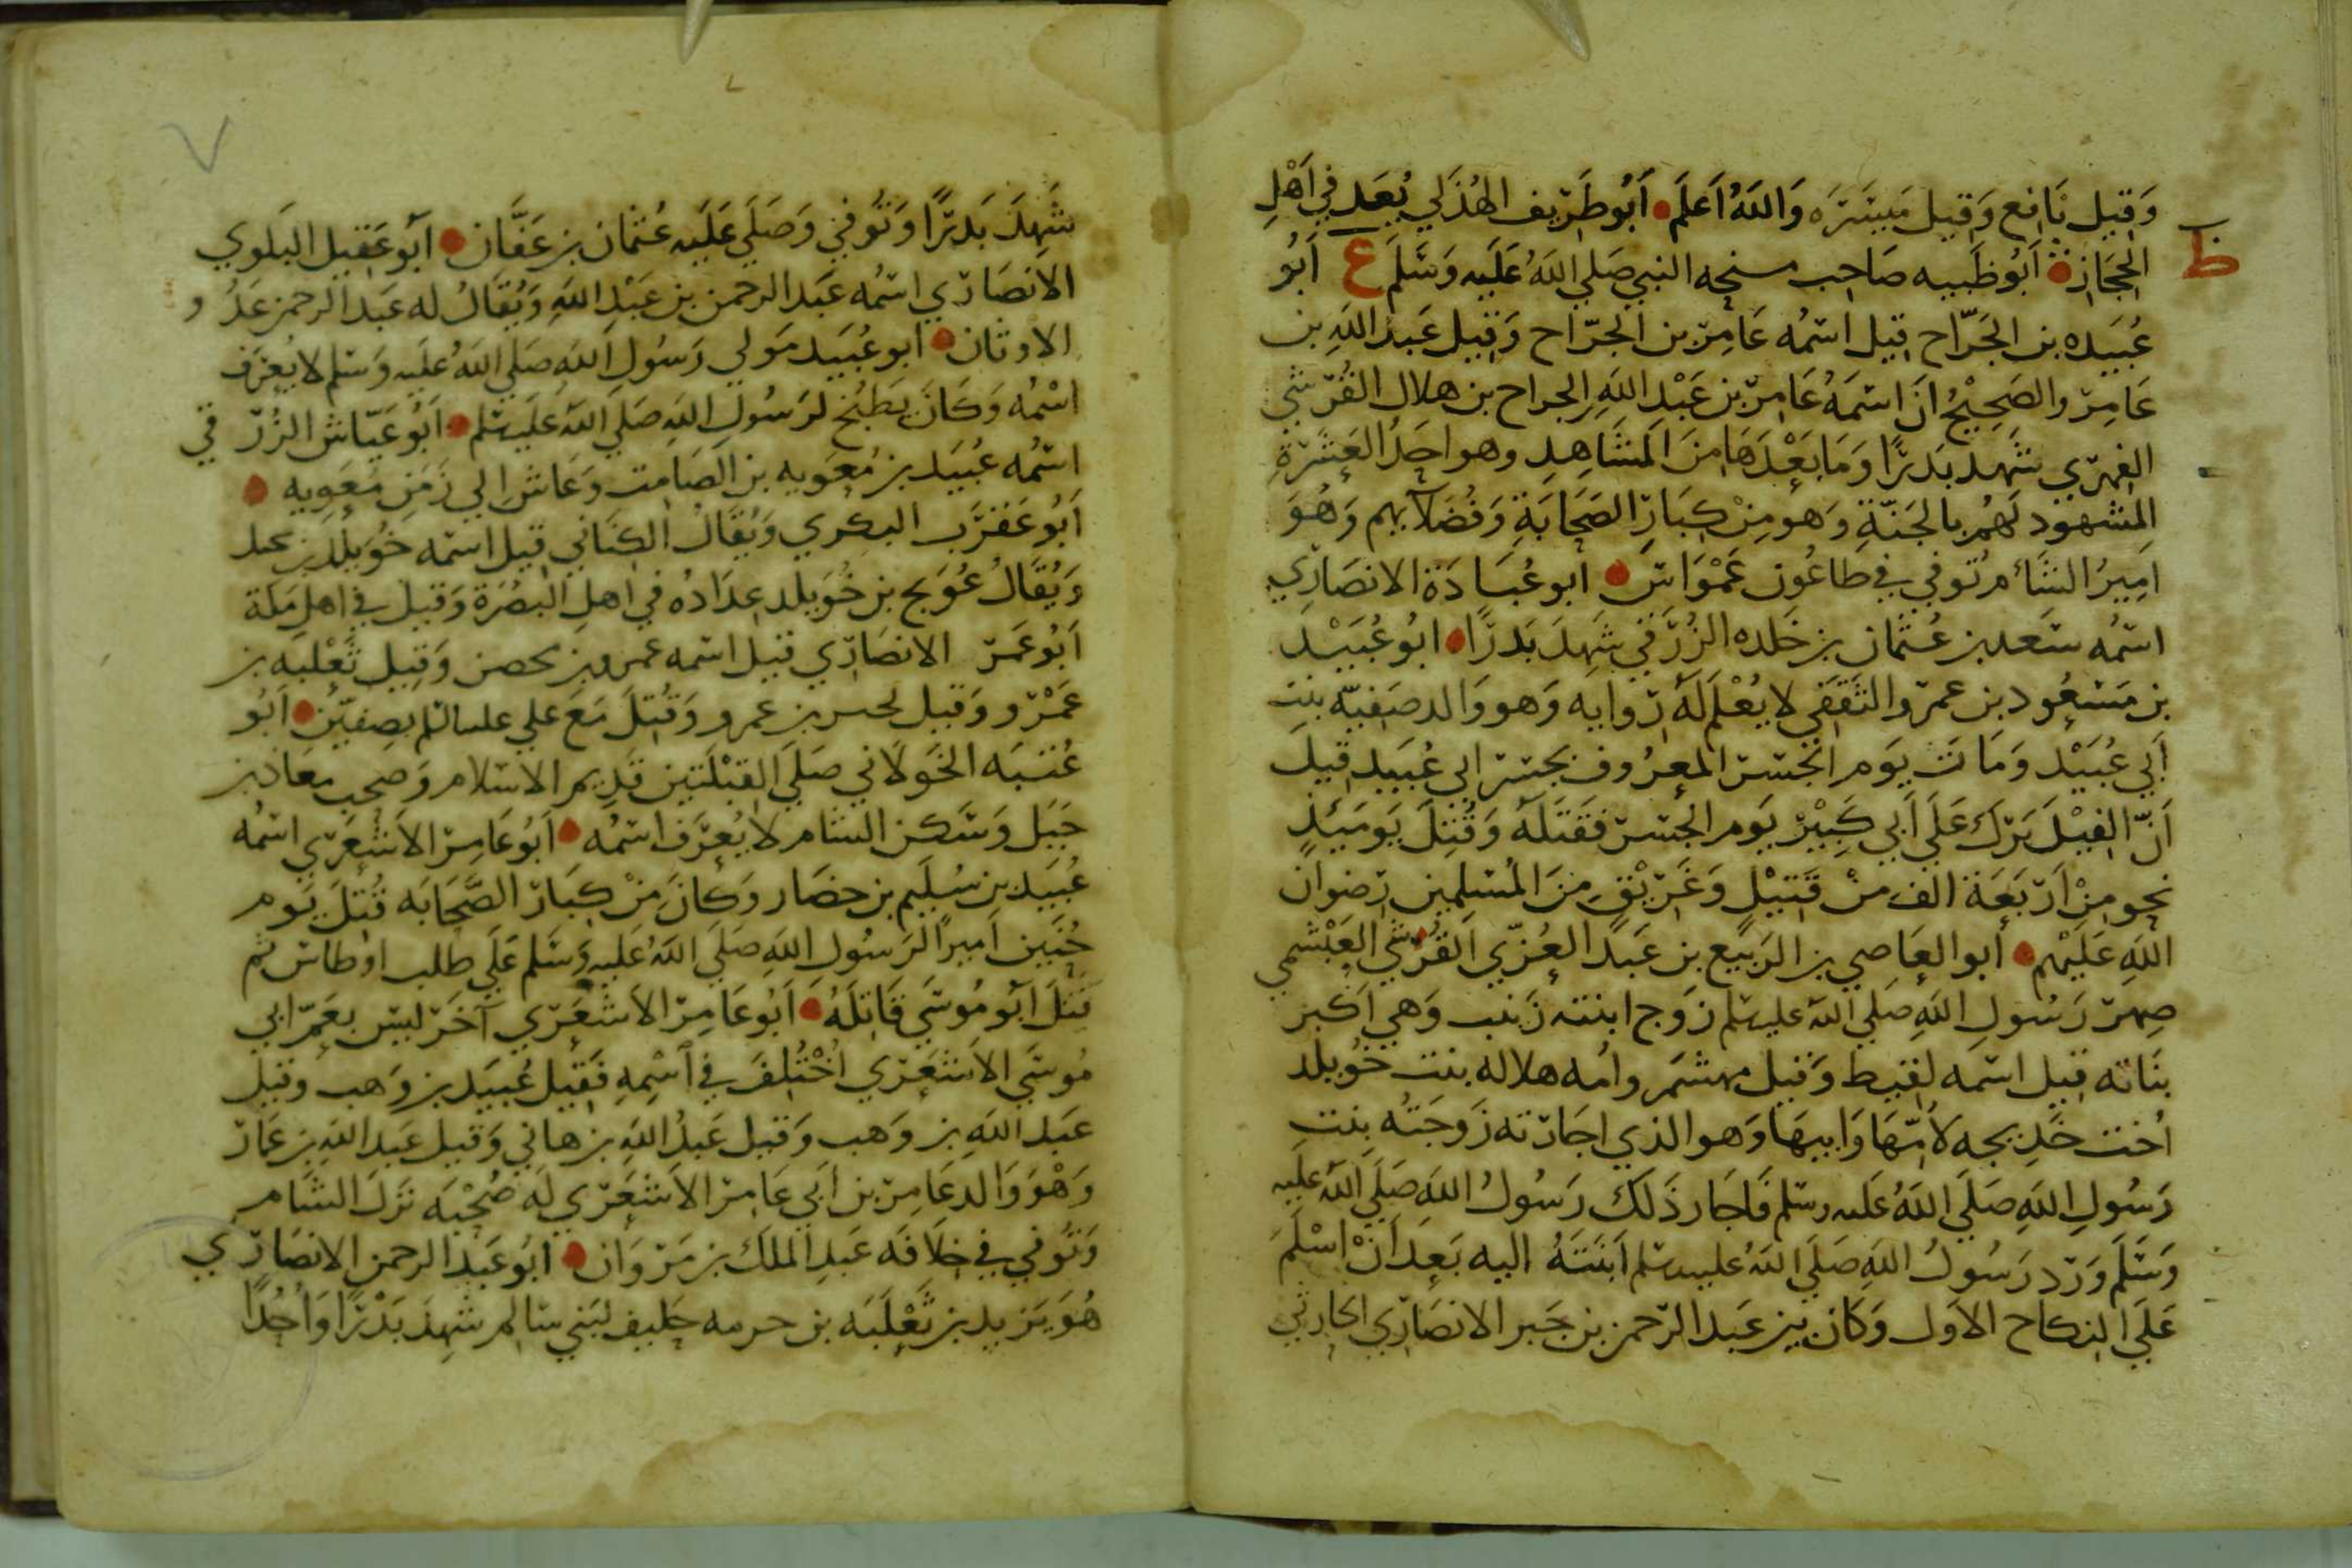 وَقِيل نَافِع وَقِيل مَيسَرَه وَاللهُ اَعلَم أَبُو طَرِيف الهُذَلي يُعَد في اَهْلِ
ظ
الحِجَاز أَبُو ظَبيه صَاحِب منحه النبي صَلي اللهُ عَلَيه وَسَلمَ ع اَبُو
عُبَيده بن الجَرّاح قيل اسمُه عَامِر بن الجرّاح وَقيل عَبد اللهِ بن
عَامِر والصَحِيْحُ انَ اسمَهُ عَامِر بن عَبْد اللهِ الجراح بن هلال القُرَشي
الفهرِي شهد بَدرًا وَمَا بَعْدَهَا مِنَ المَشَاهِدِ وهو احَدُ العَشَرَةِ
المشهود لَهُم بالجَنّةِ وَهو مِنْ كِبَارِ الصَحَابَةِ وَفُضَلآيهم وَهُوَ
امِيرُ الشَام تُوفي في طاعُون عَمْوَاسَ ابو عُبَادَة الانصَارِي
اسمُه سَعد بن عُثمان بن خَلده الزُرَقي شَهِدَ بَدرًا ابُو عُبَيْد
بن مَسعُود بن عمرو الثَقَفي لا يُعْلَم لَهُ رِوايه وَهو وَالد صَفيّه بنت
أَبي عُبَيْد وَمَات يَوم الجسر المعرُوف بجسر ابي عُبَيد قيلَ
أَنّ الفِيْلَ بَرَك عَلَي أَبي كَبِيْرْ يَوم الجسر فقَتَلَهُ وَقُتِلَ يَومَيئذٍ
نحو مِنْ اَربَعَة الف منْ قَتِيْلٍ وَغَرِيْقٍ مِنَ المُسلِمين رضوان
اللهِ عَلَيْهِم أبو العَاصي بن الرَبيع بن عَبد العُزّي القُرشي العَبْشَمي
صِهر رَسُولِ اللهِ صَلي الله عليه سلم زَوج ابنته زَينب وَهي أَكبَر
بنَاته قيل اسمَه لقِيط وَقيل مهشَم وامُه هلاله بنت خوُيلد
اُخت خَدِيجه لاُمّهَا وَابيهَا وَهو الذي اجَارته زَوجَتُه بِنت
رَسُولِ اللهِ صَلَي اللهُ عَليه وسَلم فَاجَار ذَلكَ رَسُولُ اللهِ صَلَي الله عَلَيه
وَسَلَم وَرَد رَسُولُ اللهِ صَلَي اللهُ عليه سلم اَبنَتَهُ اليه بَعد اَنْ اسْلَمَ
عَلَي النكاح الاوَل وَكَان بين عَبد الرّحمن بن جَبر الانصَارِي الحارثي
شَهِدَ بَدرًا وَتُوفي وَصَلَي عَلَيه عُثمان بن عَفَّان اَبُو عَقِيل البَلوي
الانصَارِي اسمُه عَبد الرحمن بن عَبْد اللهِ وَيُقَالُ له عَبد الرحمن عَدُو
الاوثان ابو عُبَيد مَولي رَسُولِ اللهِ صَلَي اللهُ عَلَيه وَسَلم لا يُعرَف
اسْمُه وَكَانَ يَطبُخ لرَسُولِ اللهِ صَلَي الله عَلَيه سلم اَبُو عَيّاش الزُرَقي
اسمُه عُبَيد بن مُعَويه بن الصَامِت وَعَاش الي زَمَنِ مَعَويه
اَبُو عَقرَب البكري وَيُقَالُ الكِنَاني قيل اسمه خُوَيلد بن بحد
وَيُقَالُ عُوَيج بن خُوَيلد عِدَادُه في اهلِ البَصْرَة وَقيل في اهلِ مَكة
اَبُو عَمر الانصَارِي قيل اسمه عمرو بن محصن وَقِيل ثَعْلبه بن
عَمْرو وَقيل بن عمرو وَقُتِلَ مَعَ علي عليه السلم بصِفيّن اَبُو
عُنبَه الخَولاني صَلَي القبْلَتين قَدِيم الاسلام وَصحِب معَاذ بن
جَبَل وَسَكن الشام لا يُعرَف اسمُه اَبُو عَامِر الاَشعَرِي اسمُه
عُبَيد بن سُلَيم بن حضَار وَكَانَ مِنْ كِبَار الصَّحَابَه قُتِلَ يَوم
حُنَين امِيرًا لرَسُول اللهِ صَلَي اللهُ عَليه وَسَلم عَلَي طلب اوطاس ثم
قتلَ اَبُو مُوسَي قَاتِلَهُ اَبُو عَامِر الاَشعَرِي آخَر ليس بعَمّ ابي
مُوسَي الاَشعَرِي اُخْتُلِفَ في اسْمِهِ فَقِيل عُبَيد بن وَهب وقيل
عَبد اللهِ بن وَهب وَقيل عَبدُ اللهِ بن هاني وَقيل عَبد اللهِ بن عَمَار
وَهْوَ وَالد عَامِر بن اَبي عَامِر الاَشعَرِي لَه صُحْبَه نَزلَ الشَام
وَتُوفي في خِلَافَه عَبدِ المَلك بن مَروَان اَبُو عَبد الرحمن الانصَارِي
هُوَ يَزيد بن ثَعْلَبَه بن حرمه حَليف لبَني سَالم شهِدَ بَدْرًا وَاُحُدًا